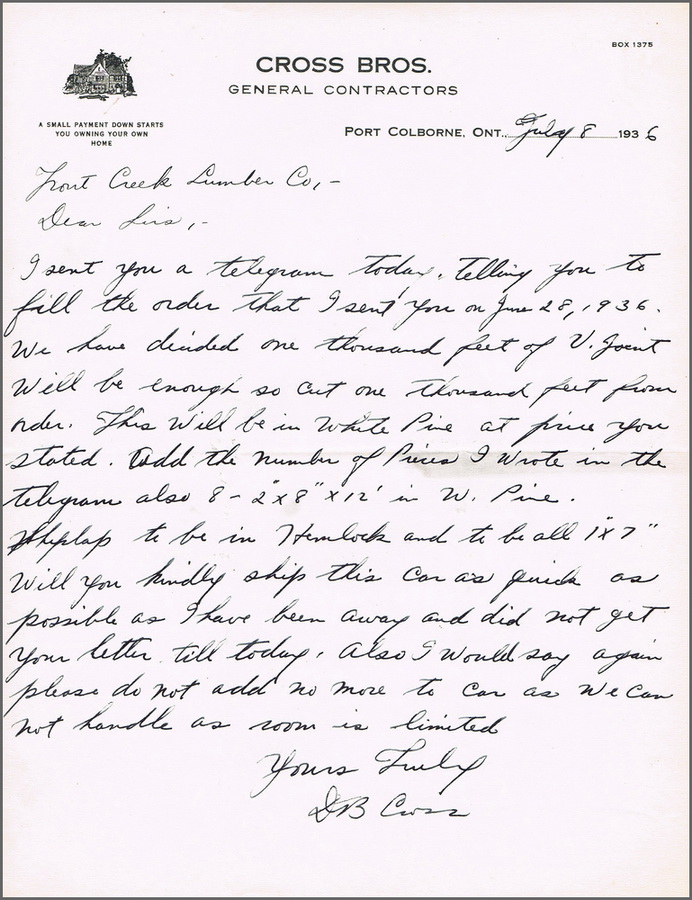 BOX 1375
CROSS BROS.
GENERAL CONTRACTORS
A SMALL PAYMENT DOWN STARTS
YOU OWNING YOUR OWN
HOME
PORT COLBORNE, ONT. July 8 1936
Trout Creek Lumber Co,-
Dear Sirs,-
I sent you a telegram today, telling you to
fill the order that I sent you on June 28, 1936.
We have decided one thousand feet of V. Joint
Will be enough so cut one thousand feet from
order. This Will be in White Pine at price you
stated. Add the number of Pieces I Wrote in the
telegram also 8 - 2" x 8" x 12' in W. Pine.
Shiplap to be in Hemlock and to be all 1" x 7"
Will you kindly ship this Car as quick as
possible as I have been away and did not get
your letter till today. Also I Would say again
please do not add no more to Car as We Can
not handle as room is limited
Yours Truly
DB Cross